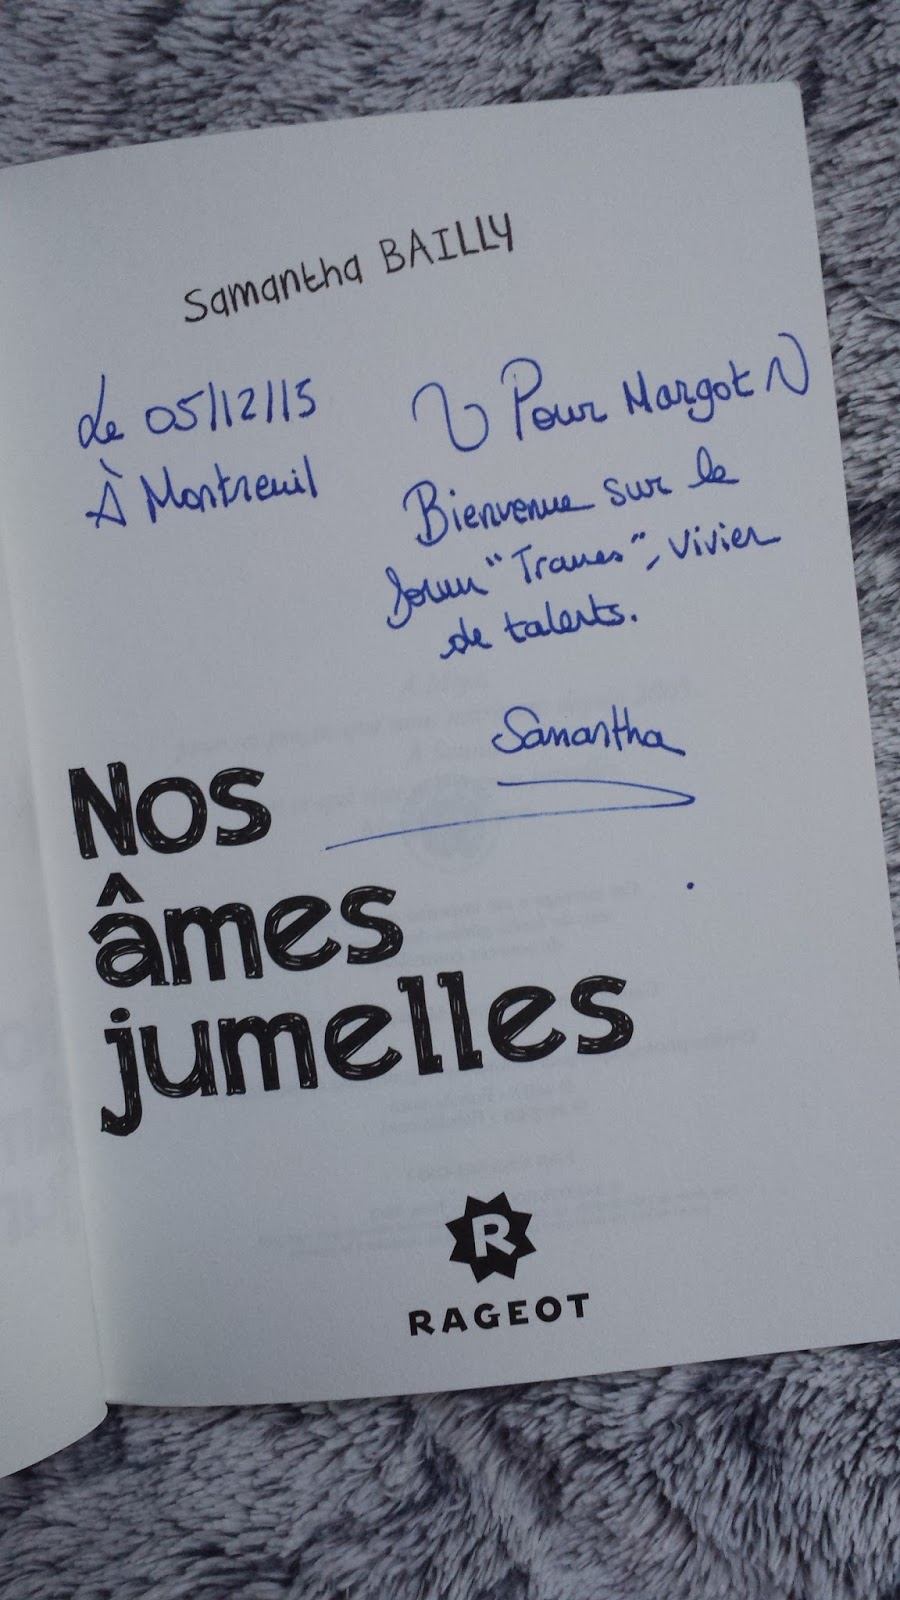 Samantha BAILLY
Le 05/12/15
À Montreuil
Pour Margot
Bienvenue sur le
forum "Trames", vivier
de talents.
Samantha
Nos
âmes
jumelles
R
RAGEOT